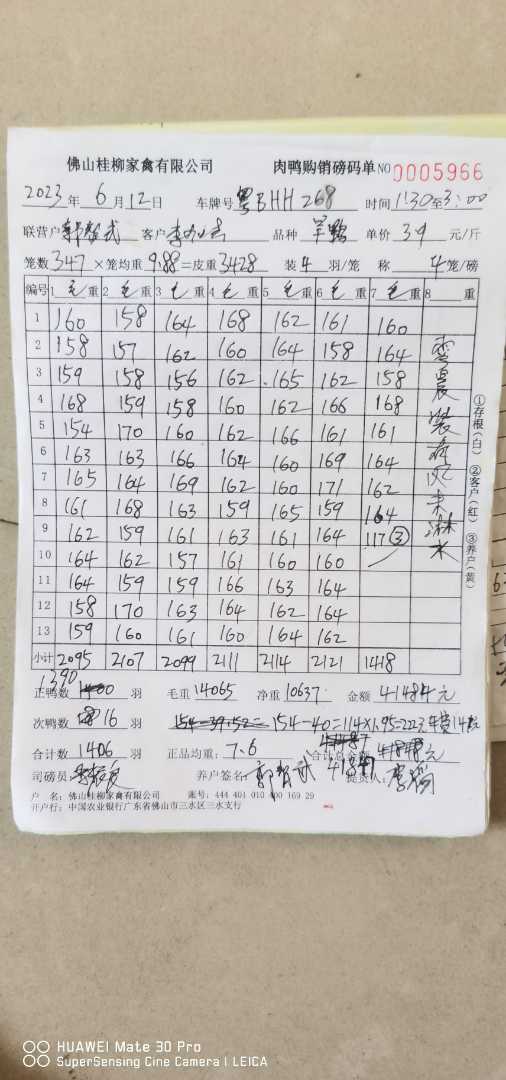 佛山桂柳家禽有限公司 肉鸭购销磅码单 NO 0005966
2023年 6月12日 车牌号 粤BHH268 时间 1:30至3:00
联营户 客户 品种 单价 39 元/斤
笼数 347 ×笼均重 9.88 =皮重 3428 装 4 羽/笼 称 4 笼/磅
编号 1 毛重 2 毛重 3 毛重 4 毛重 5 毛重 6 毛重 7 毛重 8 重
1 160 158 164 168 162 161 160
2 158 157 162 160 164 158 164
3 159 158 156 162 165 162 158
4 168 159 158 160 162 166 168
5 154 170 160 162 166 161 161
6 163 163 166 164 160 169 164
7 165 164 169 162 160 171 162
8 161 168 163 159 165 159 164
9 162 159 161 163 161 164 117 ③
10 164 162 157 161 160 160
11 164 159 159 166 163 164
12 158 170 163 164 162 164
13 159 160 161 160 164 162
小计 2095 2107 2099 2111 2114 2121 1418
淋水
①存根(白) ②客户(红) ③养户(黄)
正鸭数 1390 羽 毛重 14065 净重 10637 金额 41484 元
次鸭数 16 羽 154-40=114×1.95=222
合计数 1406 羽 正品均重: 7.6 合计总金额 元
司磅员: 养户签名: 提货人:
户 名: 佛山桂柳家禽有限公司 账号: 444 401 010 400 169 29
开户行: 中国农业银行广东省佛山市三水区三水支行
HUAWEI Mate 30 Pro
SuperSensing Cine Camera | LEICA